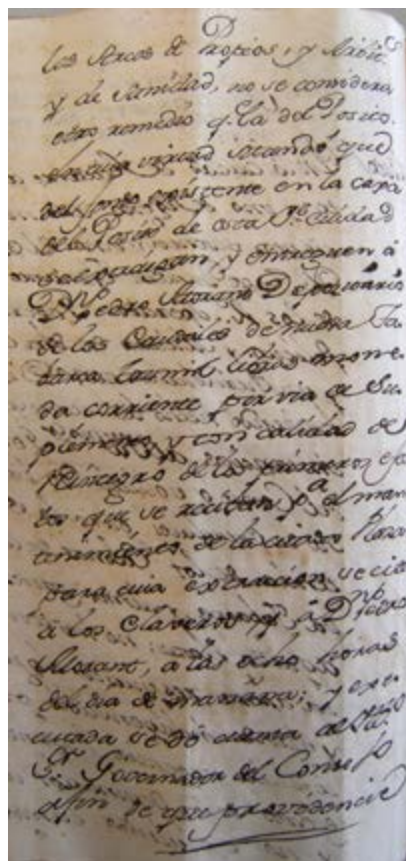 las Arcas de Propios, y Arbit.
y de Sanidad, no se considera
otro remedio q. la del Posito.
en cuia virtud mando que
del fondo existente en la caxa
del Posito de esta
se extraigan, y entreguen á
Dn. Pedro Morant Depositario
de los Caudales de nueva
mil libras mone-
da corriente por via de Su-
plemento, y con calidad de
Reintegro de los primeros efec
tos que se reciban pa. el man
tenimiento de la citada Plaza
para cuia extraccion se cite
á los Claveros y á Dn. Pedro
Morant, a las ocho horas
del dia de mañana; y exe-
cutada se dé cuenta al
Sr. Governador del Consejo
a fin de que providencie